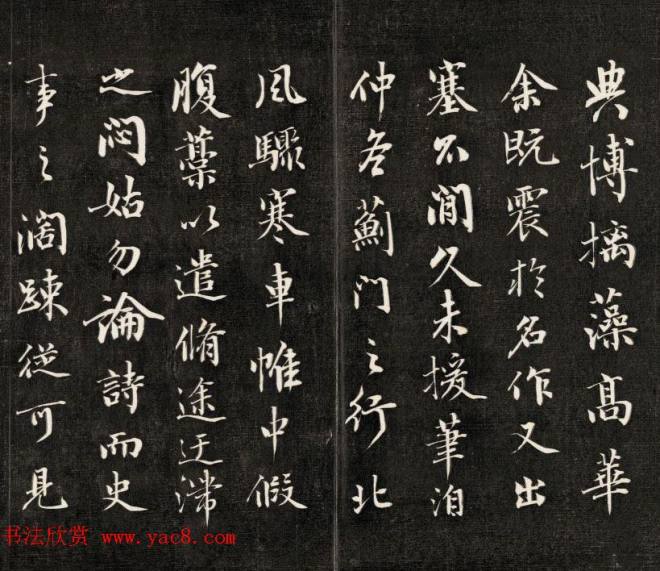 典博摛藻高華
余既震於名作又出
塞不閒久未援筆洎
仲冬薊門之行北
風驟寒車帷中假
腹藁以遣脩途迂滯
之悶姑勿論詩而史
事之濶踈從可見
书法欣赏 www.yac8.com